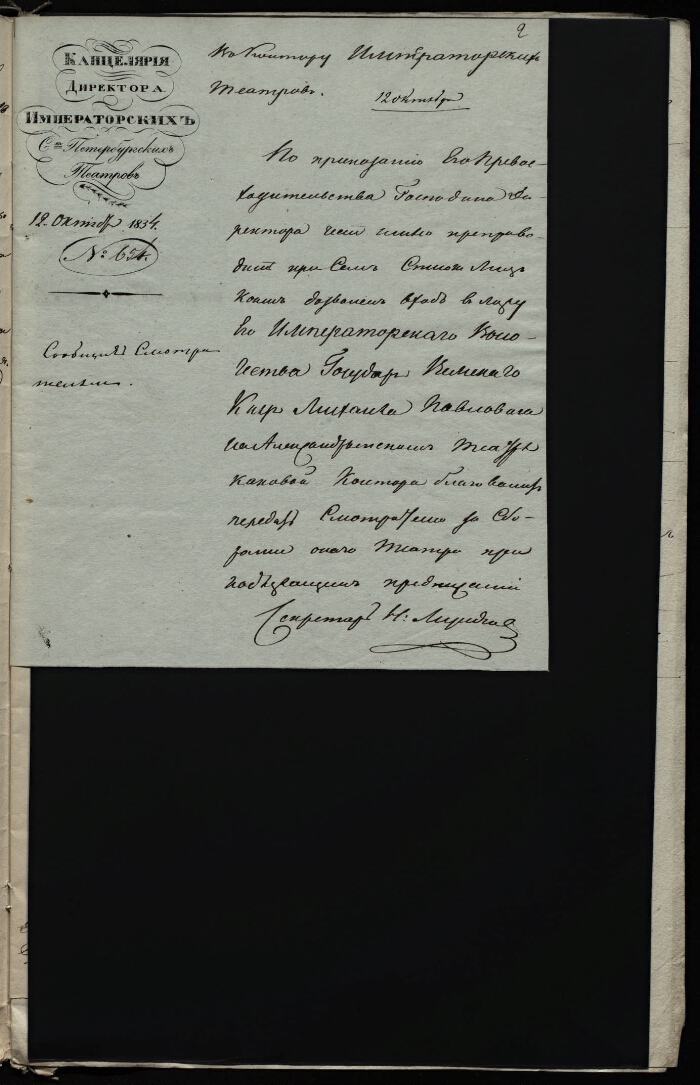 2
КАНЦЕЛЯРІЯ
ДИРЕКТОРА
ИМПЕРАТОРСКИХЪ
С.Петербургскихъ
Театровъ
12. Октябр 1834.
№ 654.
Сообщить Смотри
телямъ.
Въ Контору Императорскихъ
Театровъ.
12 октября
По приказанію Его Превос-
ходительства Господина Ди-
ректора честь имею препрово-
дить при семъ Списокъ Лицъ
коимъ дозволенъ входъ в ложу
Его Императорскаго Высо-
чества Государ Великаго
Княз Михаила Павловича
на Александрынскомъ Театре
каковой Контора благоволитъ
передать Смотрителю за Сбо-
рами онаго Театра при
надлежащемъ предписаніи
Секретарь Н.